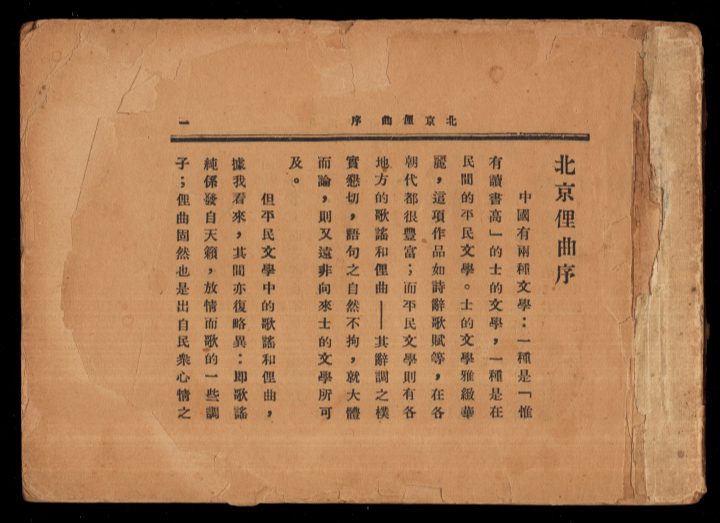 北京俚曲 序
一
北京俚曲序
中國有兩種文學：一種是「惟
有讀書高」的士的文學，一種是在
民間的平民文學。士的文學雅緻華
麗，這項作品如詩辭歌賦等，在各
朝代都很豐富；而平民文學則有各
地方的歌謠和俚曲——其辭調之樸
實戀切，語句之自然不拘，就大體
而論，則又遠非向來士的文學所可
及。
但平民文學中的歌謠和俚曲，
據我看來，其間亦復略異：即歌謠
純係發自天籟，放情而歌的一些調
子；俚曲固然也是出自民衆心情之